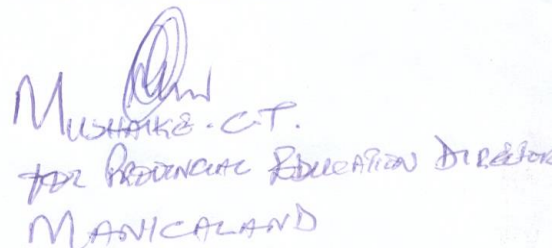 MUSHAIKE. C.T.
FOR PROVINCIAL EDUCATION DIRECTOR
MANICALAND